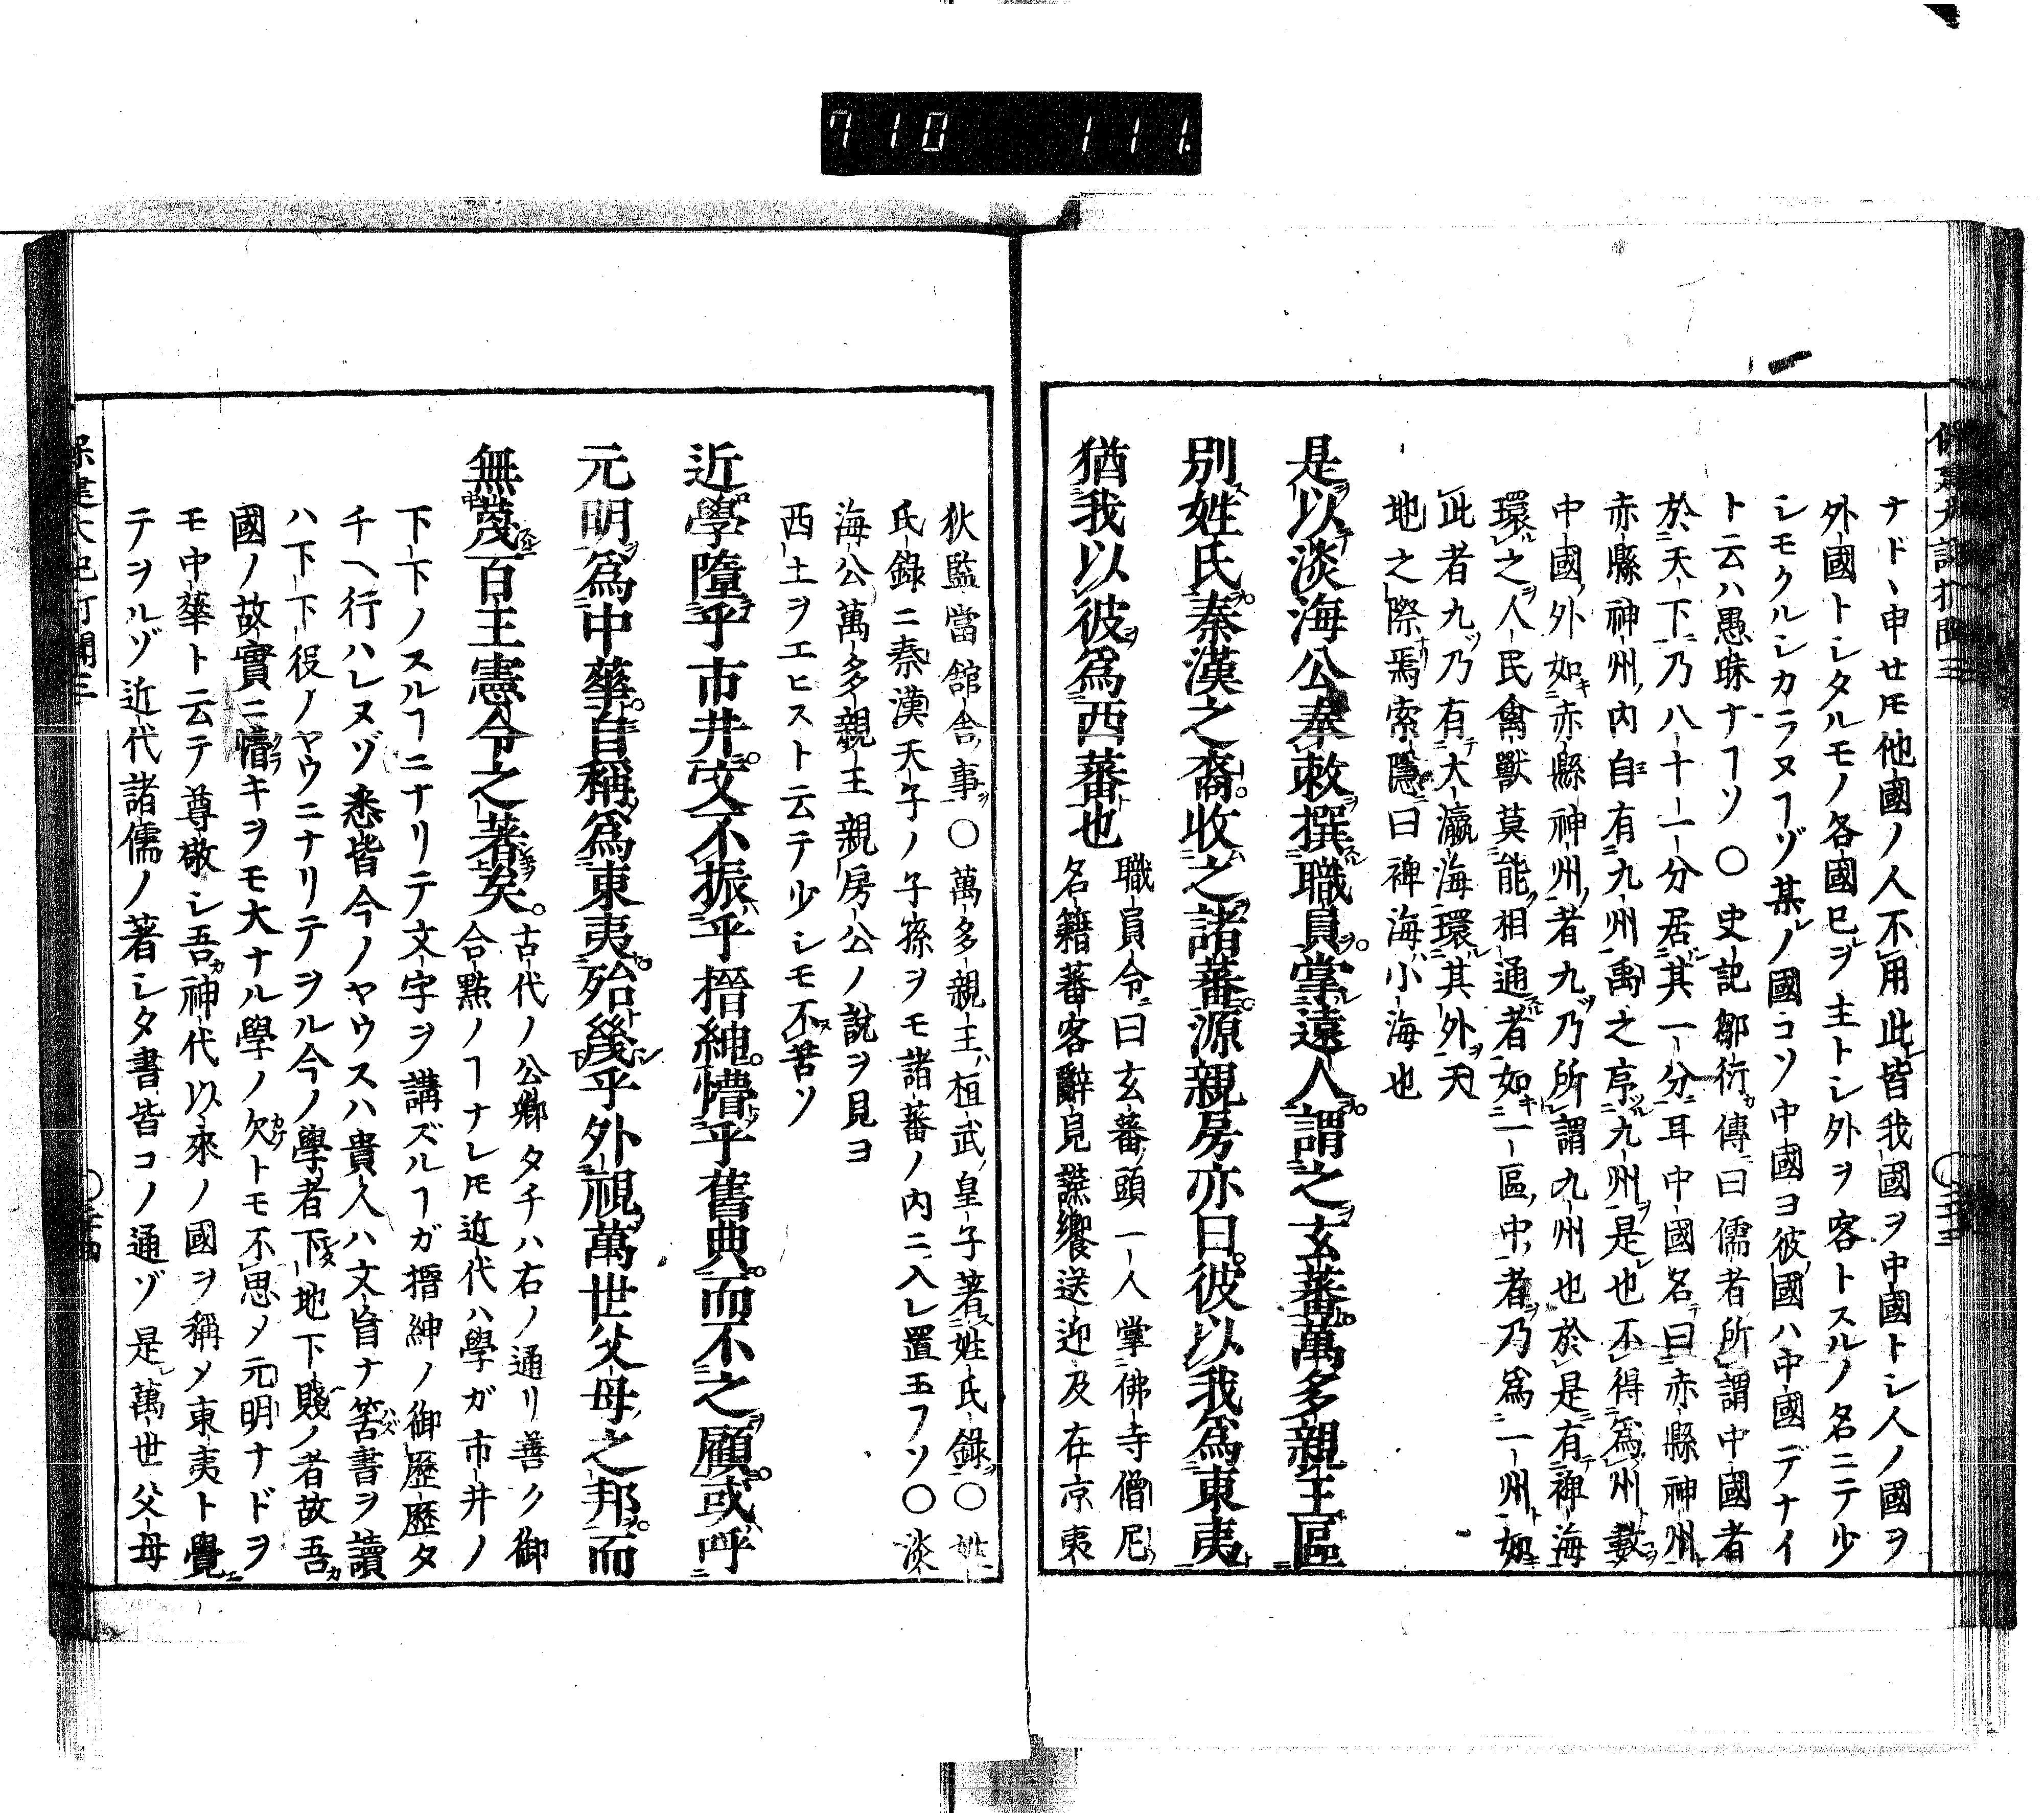 710 111
保建大記打聞三
ナド丶申セ𪜈他國ノ人不用此皆我國ヲ中國トシ人ノ國ヲ
外國トシタルモノ各國巳ヲ主トシ外ヲ客トスルノ名ニテ少
シモクルシカラヌヿゾ某ノ國コソ中國ヨ彼國ハ中國デナイ
ト云ハ愚昧ナヿソ〇史記鄒衍傳曰儒者所謂中國者
於天下乃八十一分居其一分耳中國名曰赤縣神州
赤縣神州内自有九州禹之序九州是也不得爲州數
中國外如赤縣神州者九乃所謂九州也於是有裨海
環之人民禽獸莫能相通者如一區中者乃爲一州如
此者九乃有大瀛海環其外天
地之際焉索隱曰裨海小海也
是以淡海公奉敕撰職員掌遠人謂之玄蕃萬多親王區
別姓氏秦漢之裔收之諸蕃源親房亦曰彼以我爲東夷
猶我以彼爲西蕃也
職員令曰玄蕃頭一人掌佛寺僧尼
名籍蕃客辭見讌饗送迎及在京夷
狄監當館舎事〇萬多親王桓武皇子著姓氏錄〇姓
氏錄ニ秦漢天子ノ子孫ヲモ諸蕃ノ内ニ入レ置玉フソ〇淡
海公萬多親王親房公ノ說ヲ見ヨ
西土ヲエヒスト云テ少シモ不苦ソ
近學墮乎市井文不振乎搢紳懵乎舊典而不之顧或呼
元明爲中華自稱爲東夷殆幾乎外視萬世父母之邦而
無蔑百王憲令之著矣
古代ノ公卿タチハ右ノ通リ善ク御
合點ノヿナレ𪜈近代ハ學ガ市井ノ
下下ノスルヿニナリテ文字ヲ講ズルヿガ搢紳ノ御歷歷タ
チヘ行ハレヌゾ悉皆今ノヤウスハ貴人ハ文盲ナ筈書ヲ讀
ハ下下役ノヤウニナリテヲル今ノ學者下地下賤ノ者故吾
國ノ故實ニ懵キヲモ大ナル學ノ欠トモ不思ノ元明ナドヲ
モ中華ト云テ尊敬シ吾神代以來ノ國ヲ稱メ東夷ト覺
テヲルゾ近代諸儒ノ著シタ書皆コノ通ゾ是萬世父母
保建大記打聞三